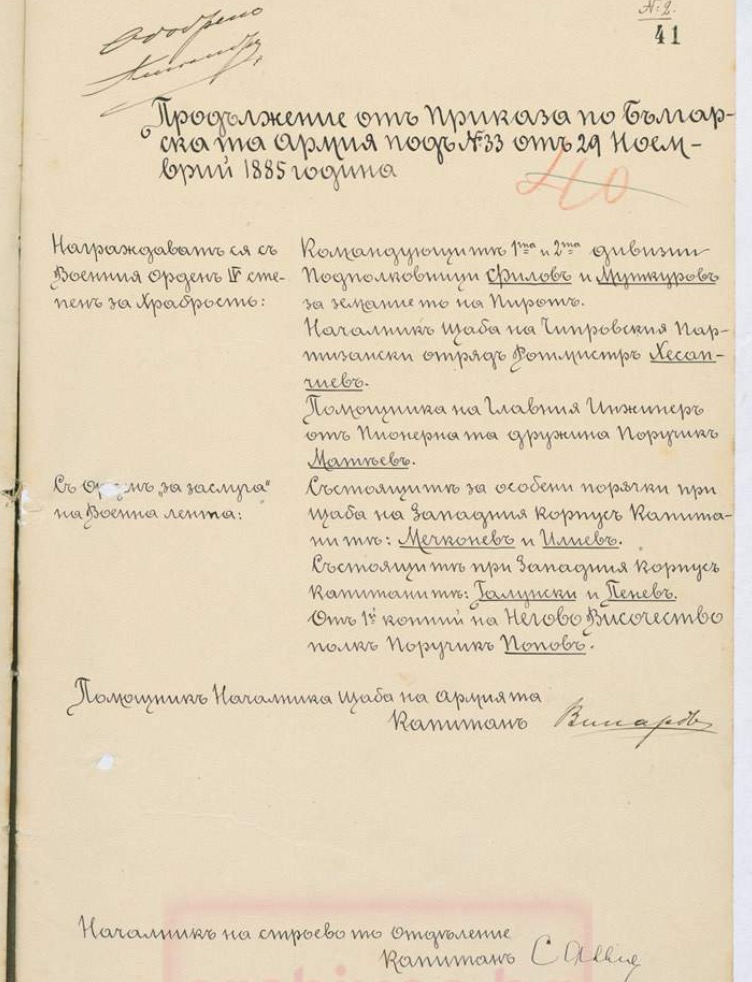 № 2.
41
Одобрено
Александръ
Продължение отъ Приказа по Българ-
ската армия подъ №33 отъ 29 Ноем-
врий 1885 година
40
Награждаватъ ся съ
Военния Орденъ IV сте-
пенъ за Храбростъ:
Командующитѣ 1та и 2та дивизии
Подполковници Филовъ и Муткуровъ
за земание то на Пиротъ.
Началникъ Щаба на Чипровския Пар-
тизански отрядъ Ротмистръ Хесап-
чиевъ.
Помощника на Главния Инжинеръ
отъ Пионерната дружина Поручикъ
Матѣевъ.
Съ Орденъ „за заслуга“
на Военна лента:
Състоящитѣ за особени порѫчки при
щаба на Западния корпусъ Капита-
нитѣ: Мечконевъ и Илиевъ.
Състоящитѣ при Западния корпусъ
капитанитѣ: Галунски и Пеневъ.
Отъ 1й конний на Негово Височество
полкъ Поручикъ Поповъ.
Помощникъ Началника щаба на армията
Капитанъ Винаровъ
Началникъ на строевото отдѣление
Капитанъ